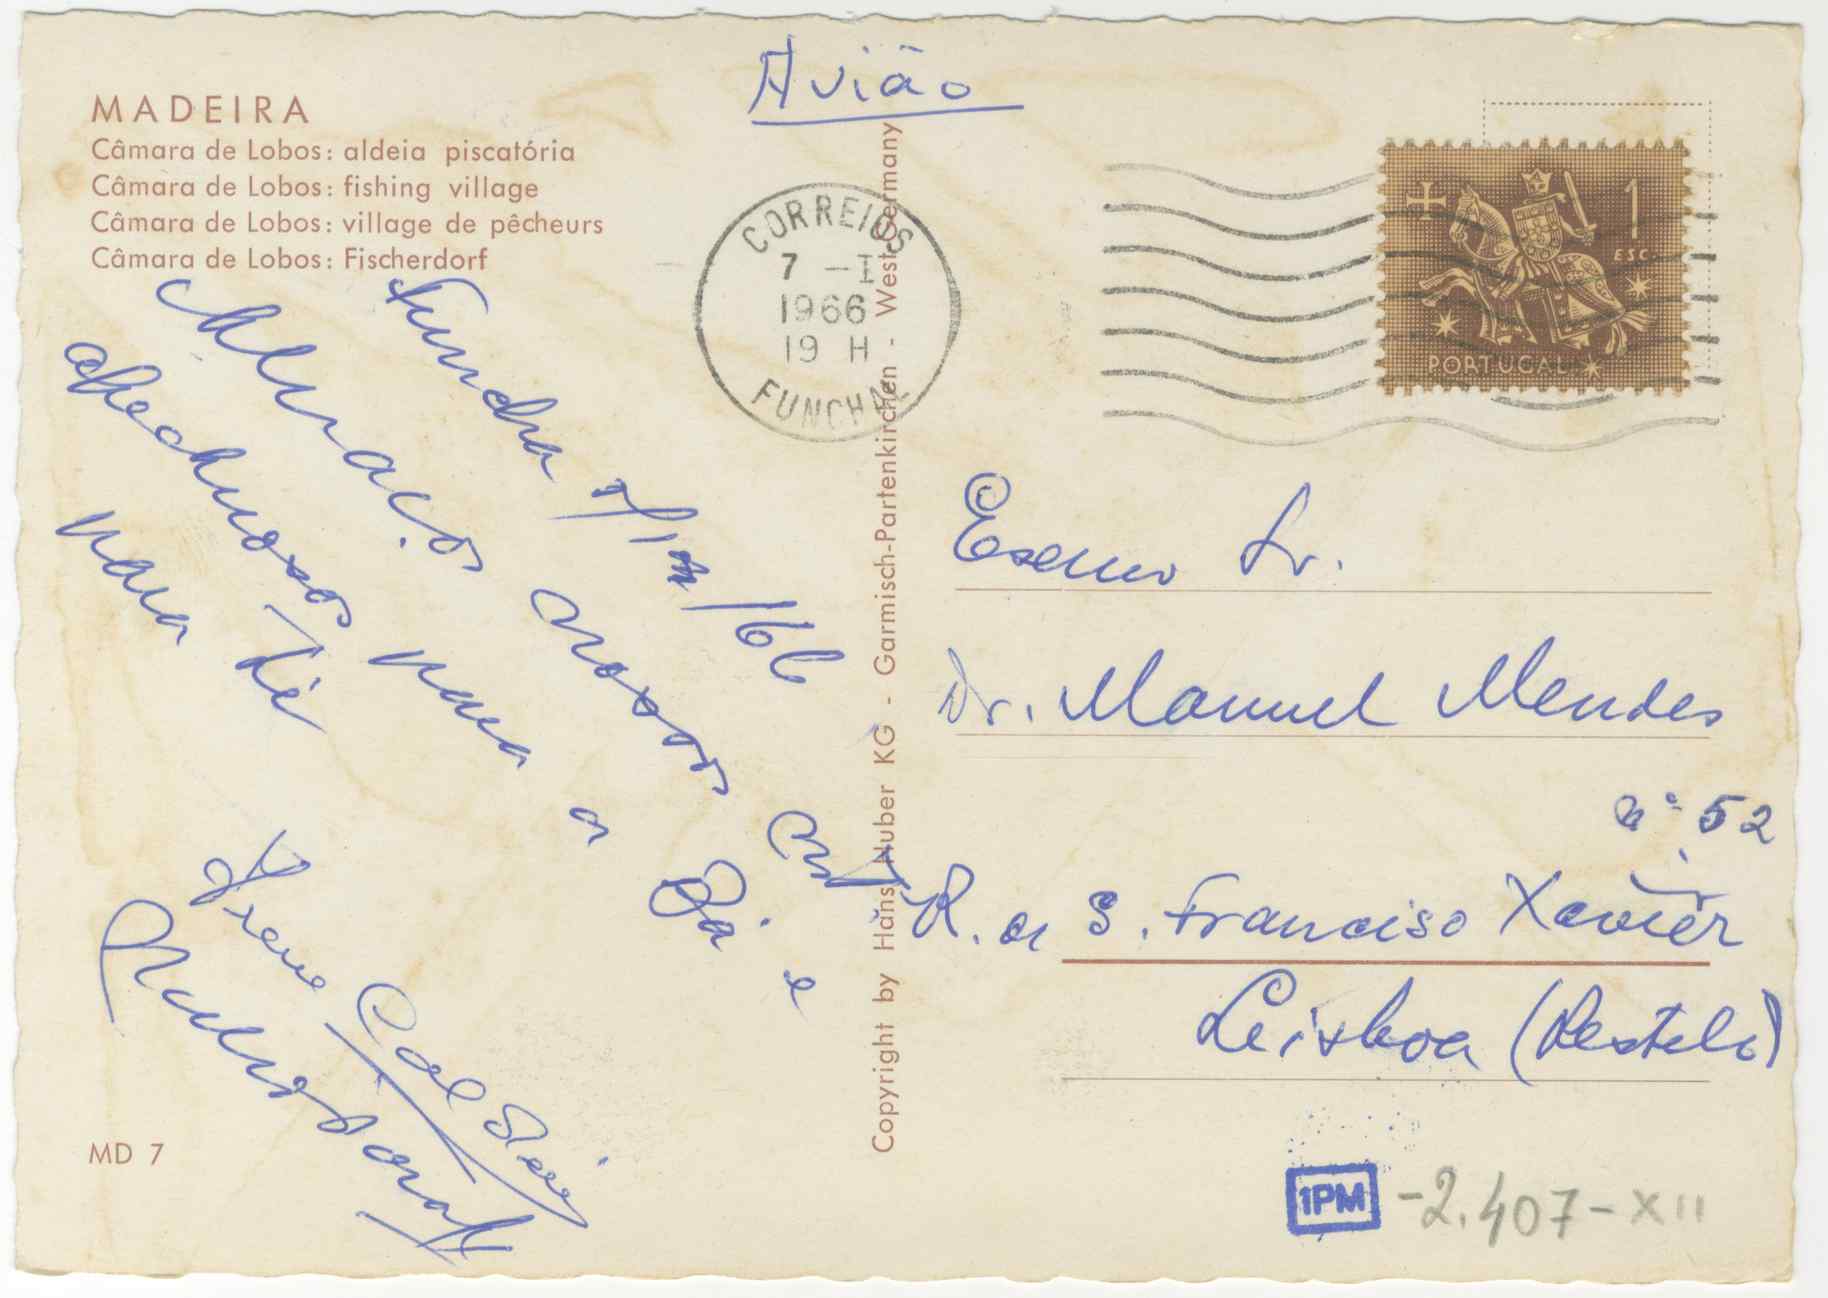 Avião
MADEIRA
Câmara de Lobos: aldeia piscatória
Câmara de Lobos: fishing village
Câmara de Lobos: village de pêcheurs
Câmara de Lobos: Fischerdorf
CORREIOS
7 -I
1966
19 H
FUNCHAL
1
ESC.
PORTUGAL
Copyright by Hans Huber KG - Garmisch-Partenkirchen - West-Germany
Abraços nossos
para a Bá e
para ti
Irene
Dr. Manuel Mendes
nº 52
R. S. Francisco Xavier
Lisboa (Restelo)
MD 7
1PM
-2.407-XII